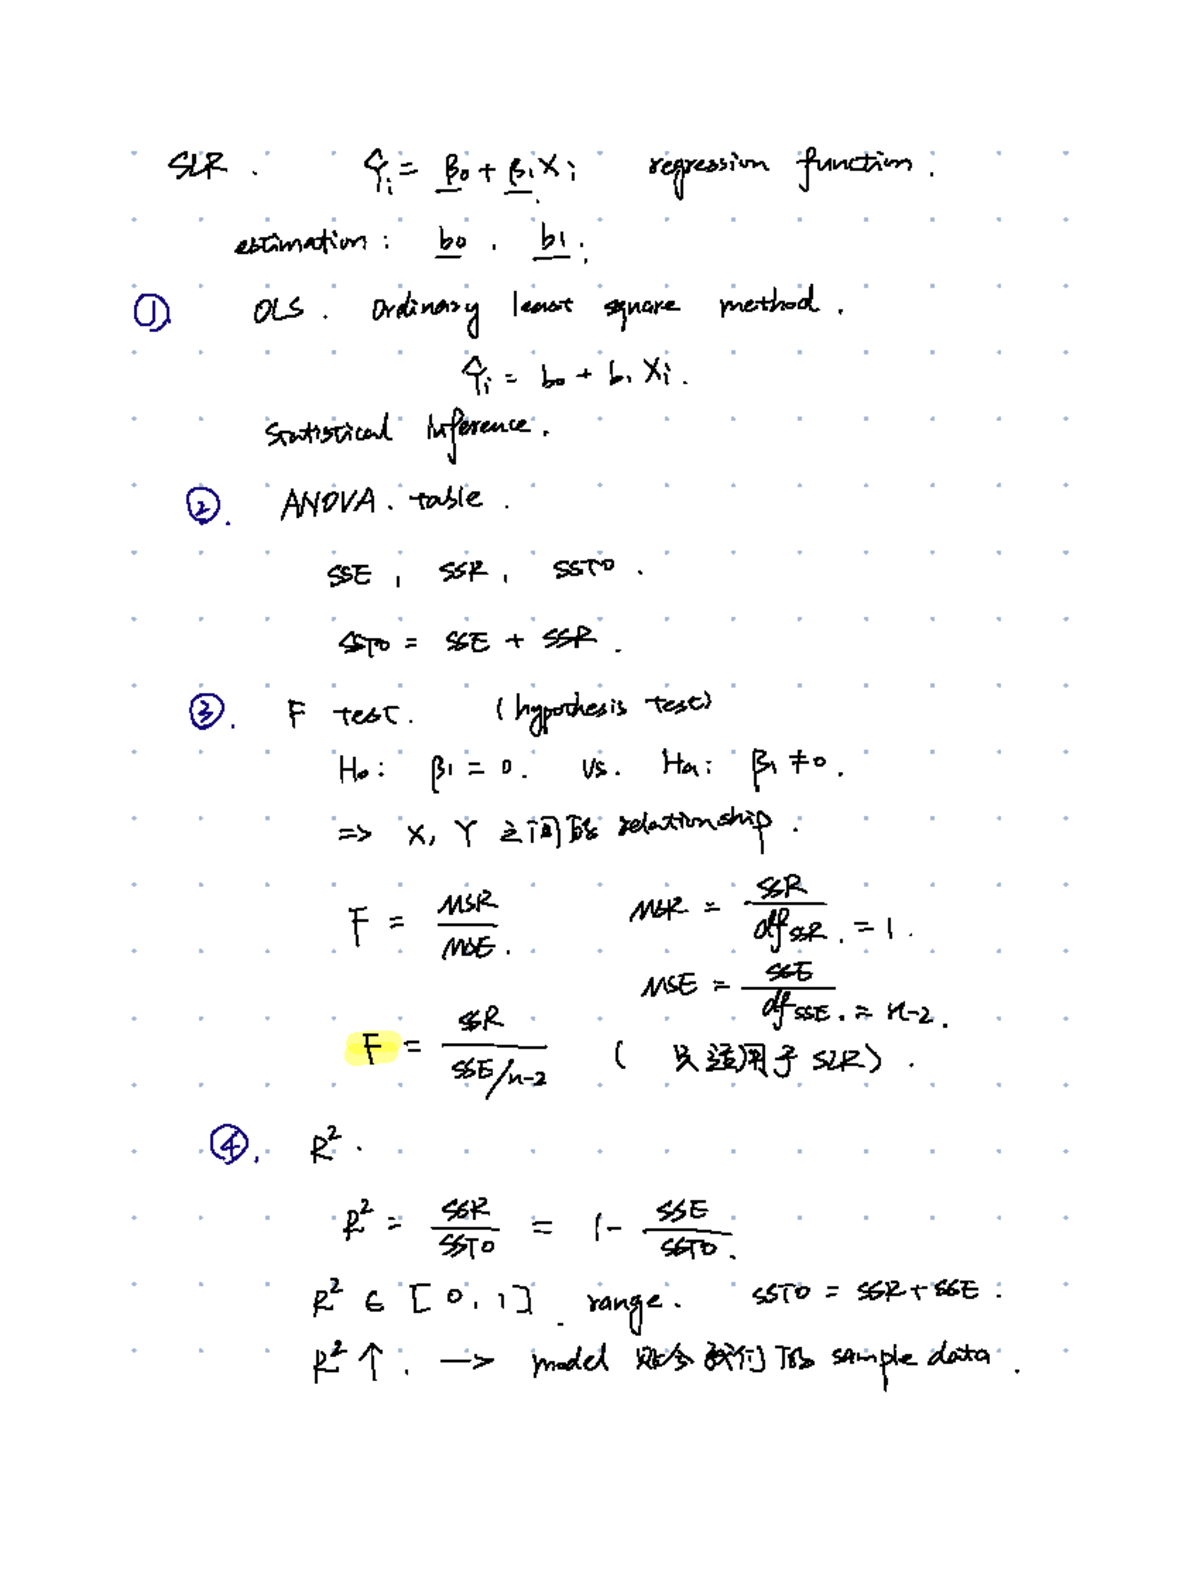 SLR. Ŷi = β0 + β1Xi regression function.
estimation: b0, b1.
① OLS. Ordinary least square method.
Ŷi = b0 + b1 Xi.
Statistical Inference.
②. ANOVA. table.
SSE, SSR, SSTO.
SSTO = SSE + SSR.
③. F test. (hypothesis test)
H0: β1 = 0. vs. Ha: β1 ≠ 0.
=> X, Y 之间的 relationship.
F = MSR / MSE. MSR = SSR / df SSR. = 1.
MSE = SSE / df SSE. = n-2.
F = SSR / (SSE/n-2) (只适用于 SLR).
④. R².
R² = SSR / SSTO = 1 - SSE / SSTO.
R² ∈ [0, 1]. range. SSTO = SSR + SSE.
R² ↑. —> model 贴合我们的 sample data.